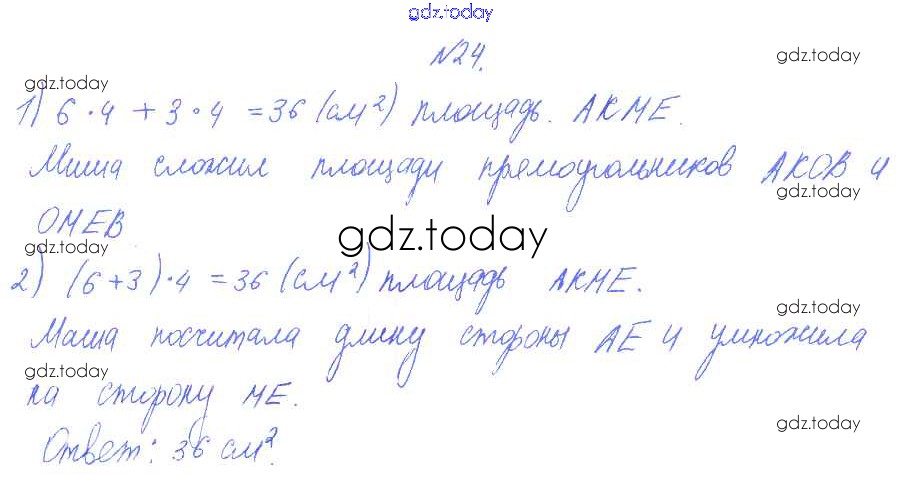 gdz.today
№24.
gdz.today
gdz.today
1) 6·4 + 3·4 = 36 (см²) площадь. АКМЕ.
Миша сложил площади прямоугольников АКОВ и
gdz.today
ОМЕВ
gdz.today
gdz.today
2) (6+3)·4 = 36 (см²) площадь АКМЕ.
gdz.today
Маша посчитала длину стороны АЕ и умножила
gdz.today
на сторону МЕ.
gdz.today
Ответ: 36 см².